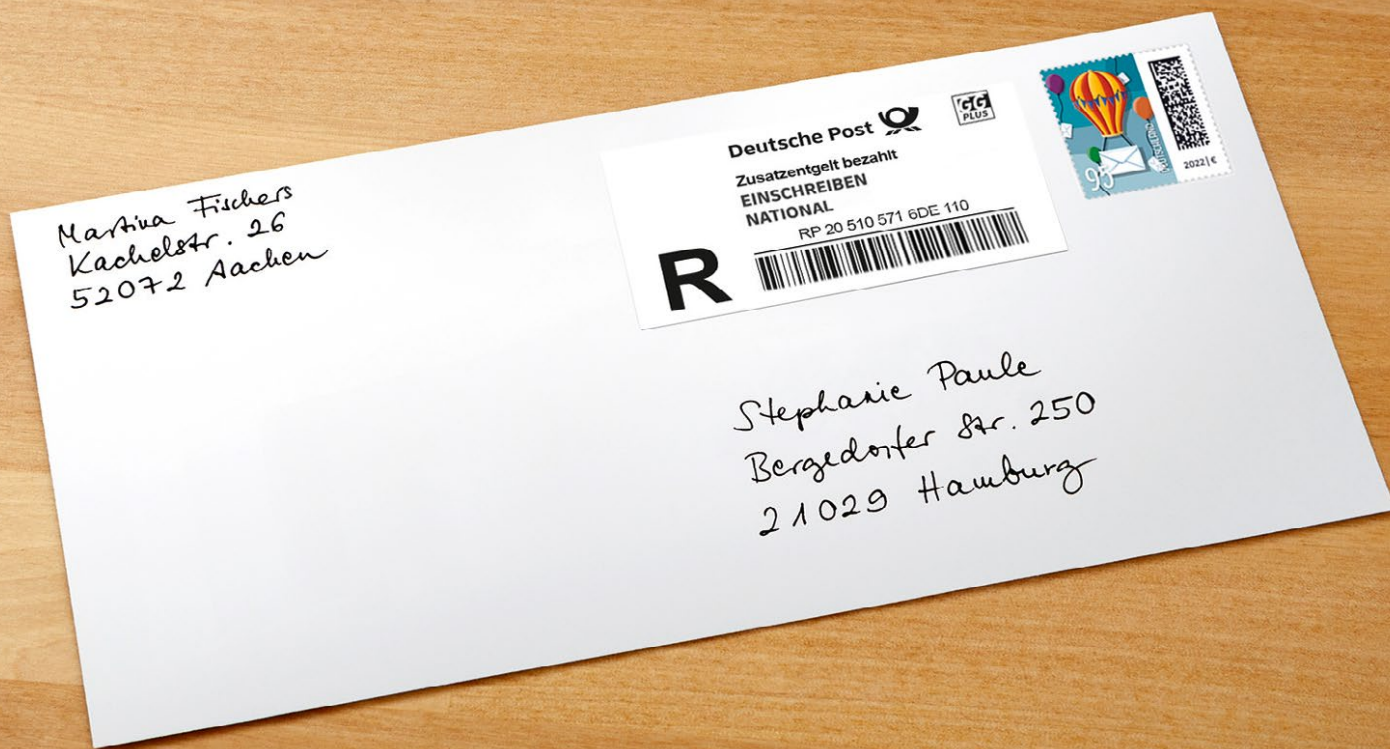 Martina Fischers
Kachelstr. 26
52072 Aachen
Deutsche Post
GG
PLUS
Zusatzentgelt bezahlt
EINSCHREIBEN
NATIONAL
RP 20 510 571 6DE 110
R
95
DEUTSCHLAND
2022 | €
Stephanie Paule
Bergedorfer Str. 250
21029 Hamburg